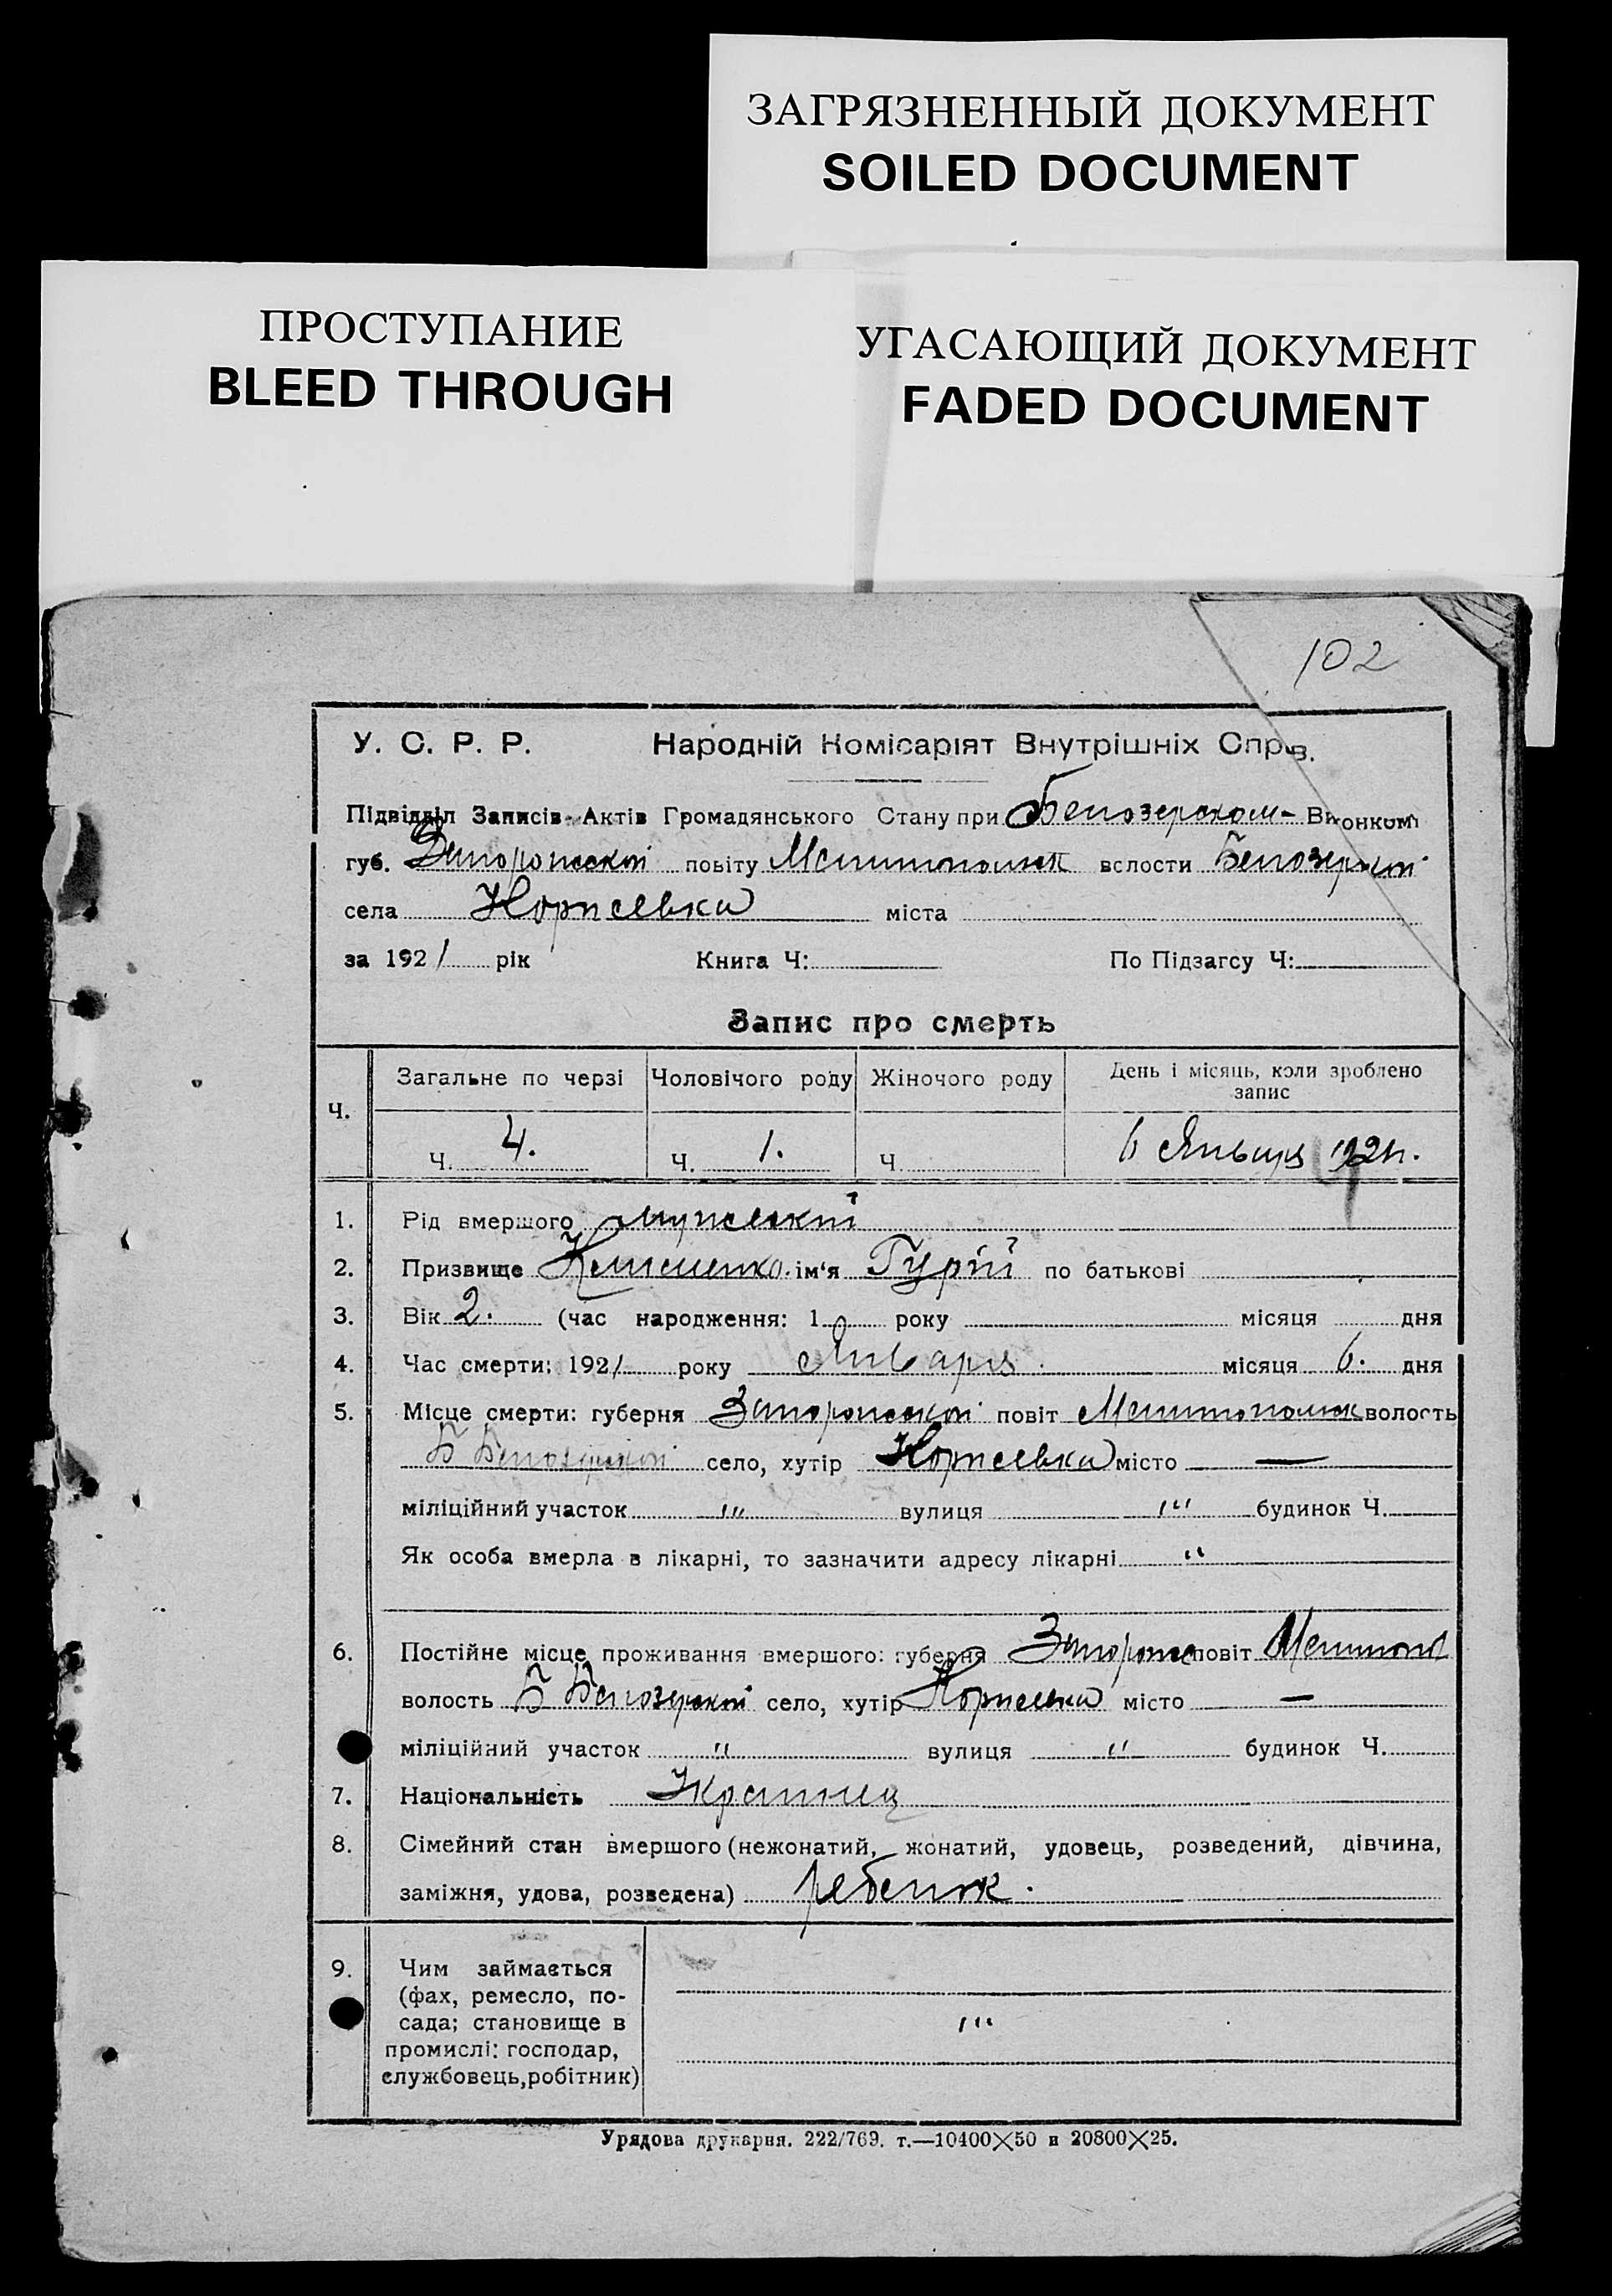 ЗАГРЯЗНЕННЫЙ ДОКУМЕНТ
SOILED DOCUMENT
ПРОСТУПАНИЕ
BLEED THROUGH
УГАСАЮЩИЙ ДОКУМЕНТ
FADED DOCUMENT
102
У. С. Р. Р. Народній Комісаріят Внутрішніх Спрв.
Підвідділ Записів Актів Громадянського Стану при Белозерском Виконкомі
губ. Запорожской повіту Мелитополь волости Белозерской
села міста
за 1921 рік Книга Ч: По Підзагсу Ч:
Запис про смерть
Ч. Загальне по черзі Чоловічого роду Жіночого роду День і місяць, коли зроблено запис
Ч. 4. Ч. 1. Ч. 6 Января 1921г.
1. Рід вмершого мужской
2. Призвище ім'я Гурій по батькові
3. Вік 2. (час народження: 1 року місяця дня
4. Час смерти: 1921 року Января місяця 6. дня
5. Місце смерти: губерня Запорожской повіт волость
Б Белозерской село, хутір місто —
міліційний участок "" вулиця "" будинок Ч.
Як особа вмерла в лікарні, то зазначити адресу лікарні "
6. Постійне місце проживання вмершого: губерня Запорож повіт Мелитоп
волость Б Белозерской село, хутір місто —
міліційний участок " вулиця " будинок Ч.
7. Національність Украинец
8. Сімейний стан вмершого (нежонатий, жонатий, удовець, розведений, дівчина,
заміжня, удова, розведена) ребенок.
9. Чим займається
(фах, ремесло, по-
сада; становище в ""
промислі: господар,
службовець,робітник)
Урядова друкарня. 222/769. т.—10400×50 и 20800×25.